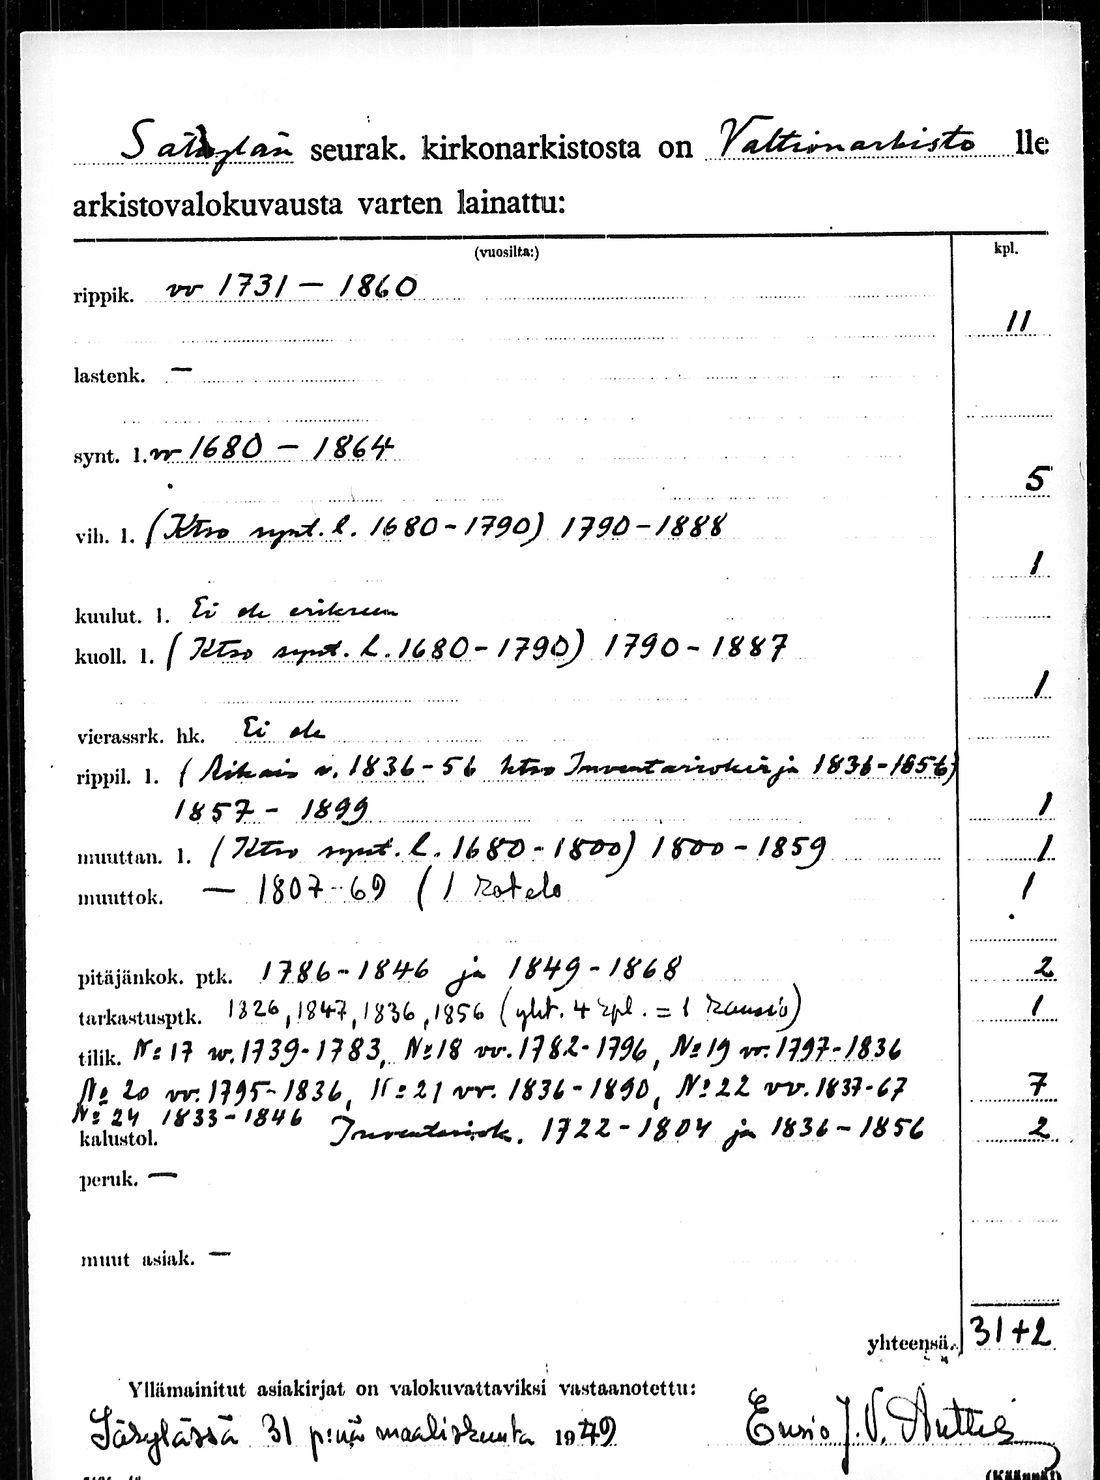 Säkylän seurak. kirkonarkistosta on Valtionarkisto lle
arkistovalokuvausta varten lainattu:
(vuosilta:) kpl.
rippik. vv 1731 – 1860
11
lastenk. –
synt. l. vv 1680 – 1864
5
vih. l. (Ktso synt. l. 1680-1790) 1790-1888
1
kuulut. l. Ei ole erikseen
kuoll. l. (Ktso synt. l. 1680-1790) 1790-1887
1
vierassrk. hk. Ei ole
rippil. l. (Aikais v. 1836-56 ktso Inventariokirja 1836-1856)
1857 - 1899 1
muuttan. l. (Ktso synt. l. 1680-1800) 1800-1859 1
muuttok. — 1807-69 (1 kotelo 1
pitäjänkok. ptk. 1786-1846 ja 1849-1868 2
tarkastusptk. 1826, 1847, 1836, 1856 (yht. 4 kpl. = 1 kansio) 1
tilik. No 17 vv. 1739-1783, No 18 vv. 1782-1796, No 19 vv. 1797-1836
No 20 vv. 1795-1836, No 21 vv. 1836-1890, No 22 vv. 1837-67 7
No 24 1833-1846
kalustol. Inventariok. 1722-1804 ja 1836-1856 2
peruk. —
muut asiak. —
yhteensä 31+2
Yllämainitut asiakirjat on valokuvattaviksi vastaanotettu:
Säkylässä 31 p:nä maaliskuuta 1949 Ensio J. V. Anttila
(Käännä!)